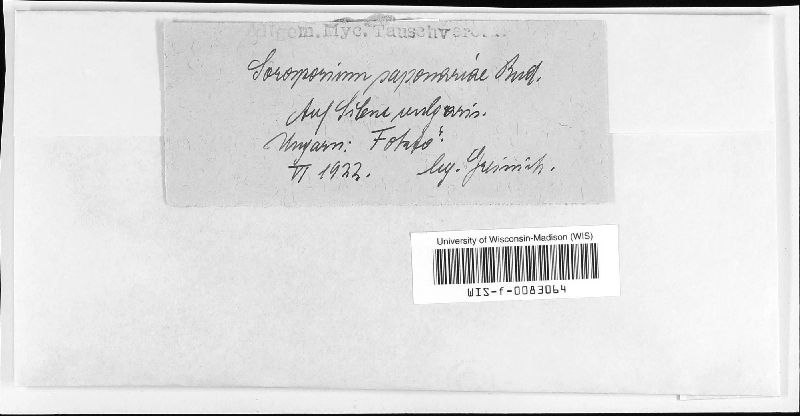 Allgem. Myc. Tauschverein
Sorosporium saponariae Rud.
Auf Silene vulgaris.
Ungarn:
VI 1922. leg.
University of Wisconsin-Madison (WIS)
WIS-f-0083064